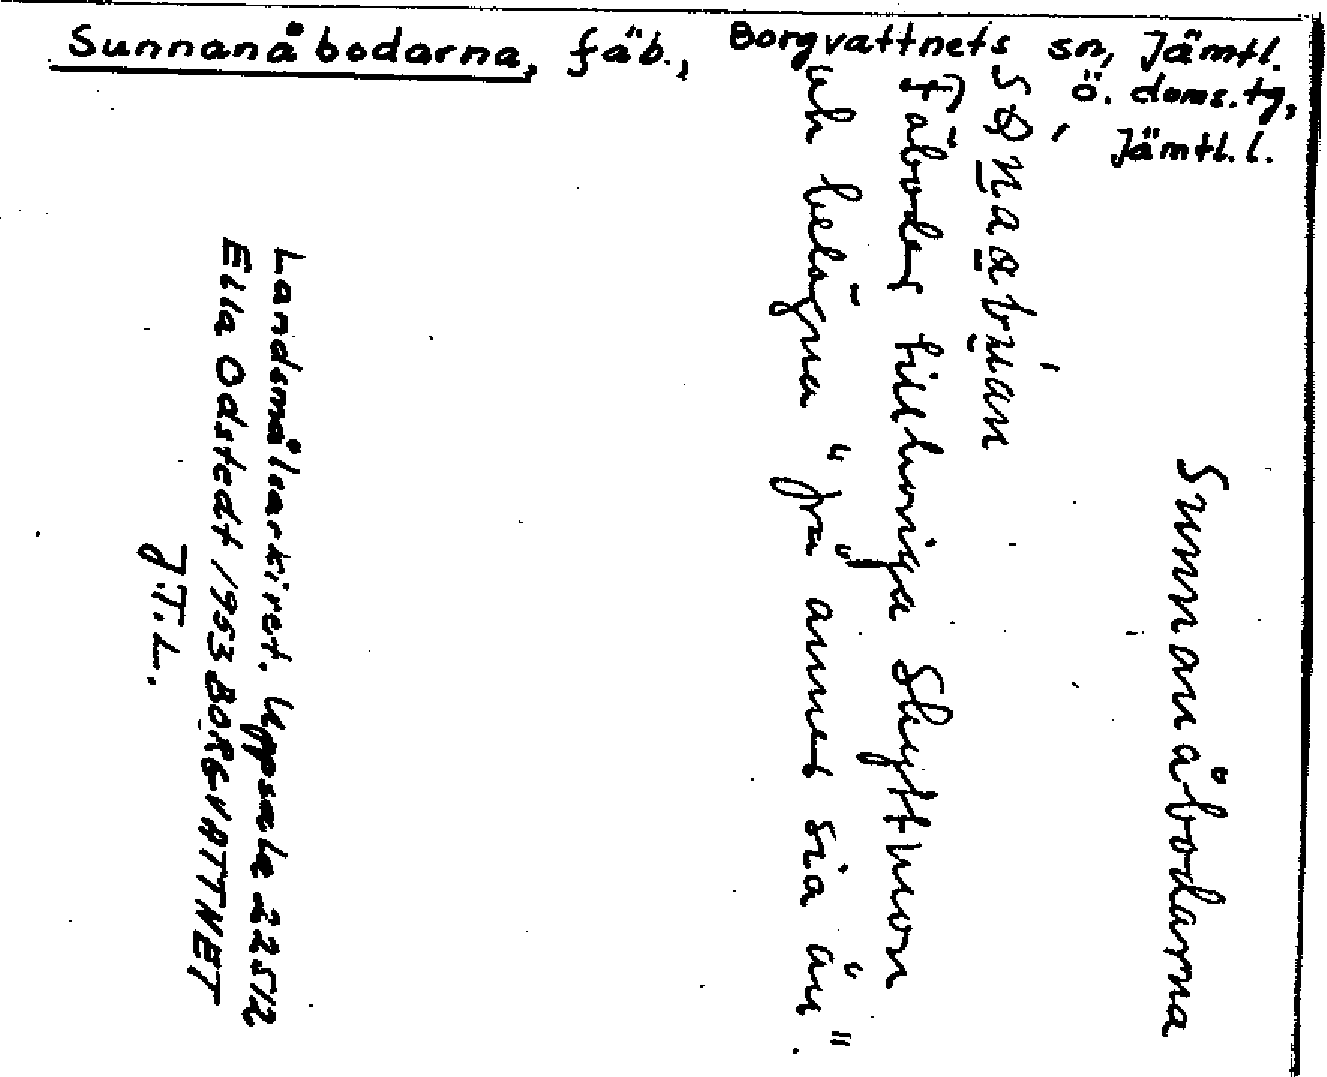 Sunnanåbodarna, fäb., Borgvattnets sn, Jämtl.
ö. doms.tg,
Jämtl. l.
Sunnanåbodarna
Fäbodar tillhöriga Skyttmon
och belägna "på annes sia ån".
Landsmålsarkivet. Uppsala 22512
Ella Odstedt 1953 BORGVATTNET
J.T.L.